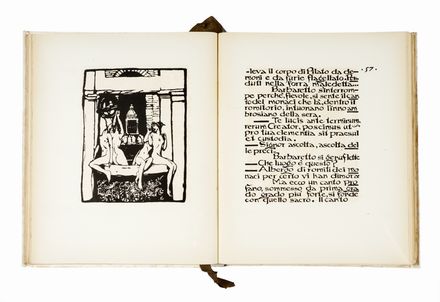 ·57·
«leva il corpo di Pilato da de-
moni e da furie flagellato
diti nella forra maledetta...
Barbaretto s'interrom-
pe perché, fievole, si sente il can
to dei monaci che là, dentro il
romitorio, intuonano l'inno am
brosiano della sera.
— Te lucis ante terminum
rerum Creator, poscimus ut
pro tua clementia sit praesul
et custodia.
— Signor ascolta, ascolta del
le preci.
Barbaretto si genuflette
— Che luogo è questo?
— Albergo di romiti dei mo
naci per certo vi han dimora
Ma ecco un canto pro
fano, sommesso da prima
do grado più forte, si fonde
con quello sacro. Il canto